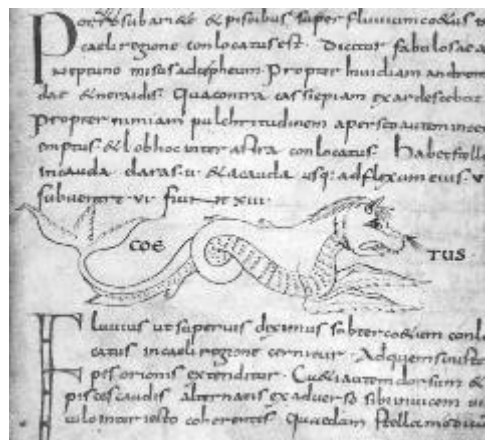 Porro sub ariete & piscibus super fluuium co&us
caeli regione conlocatus est. Dictus fabulose a
neptuno missus ad cepheum. Propter inuidiam androm
dae & nereidis. Qua contra cassiepiam exardescebat
Propter nimiam pulchritudinem a perseo autem
emptus. & ob hoc inter astra conlocatus. Habet stell
in cauda claras. ii. & a cauda usq; ad flexum eius. v
sub uentre vi. fiunt xiii.
COE TUS
Fluuius ut superius diximus subter co&um conlo
catus in caeli regione cernitur. Ad quem
pis orionis extenditur. Cui autem dorsum &
pisces caudis alternatis ex aduerso sibi inuicem
coherentes. Quaedam stellae